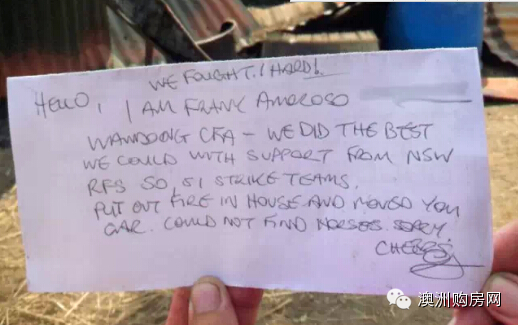 WE FOUGHT! HARD!
HELLO, I AM FRANK AMOROSO
WANDONG CFA - WE DID THE BEST
WE COULD WITH SUPPORT FROM NSW
RFS SO, 51 STRIKE TEAMS.
PUT OUT FIRE IN HOUSE AND MOVED YOU
CAR. COULD NOT FIND HORSES. SORRY
CHEERS
澳洲购房网